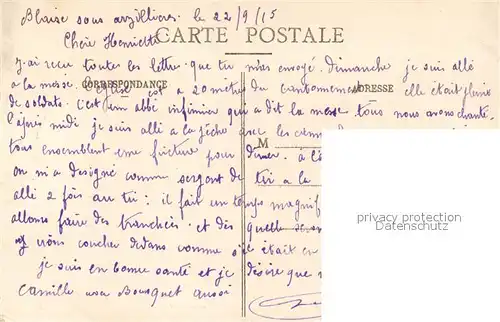 Blaise sous arzillières. le 22/9/15
Chère Henriette
CARTE POSTALE
J'ai reçu toutes les lettre que tu m'as envoyé. Dimanche je suis allé
a la messe l'église est a 20 mètres du cantonnement elle était pleine
CORRESPONDANCE
ADRESSE
de soldats. C'est un abbé infirmier qui a dit la messe tous nous avons chanté.
l'après midi je suis allé a la pêche avec les
M
tous ensemblent une friture pour diner. a
on m'a désigné comme sergent de tir a la
allé 2 fois au tir: il fait un temps magnif
allons faire des tranchées et des quelle
y irons coucher dedans comme s'il était en
je suis en bonne santé et je désire que
Camille Bousquet aussi
privacy protection
Datenschutz